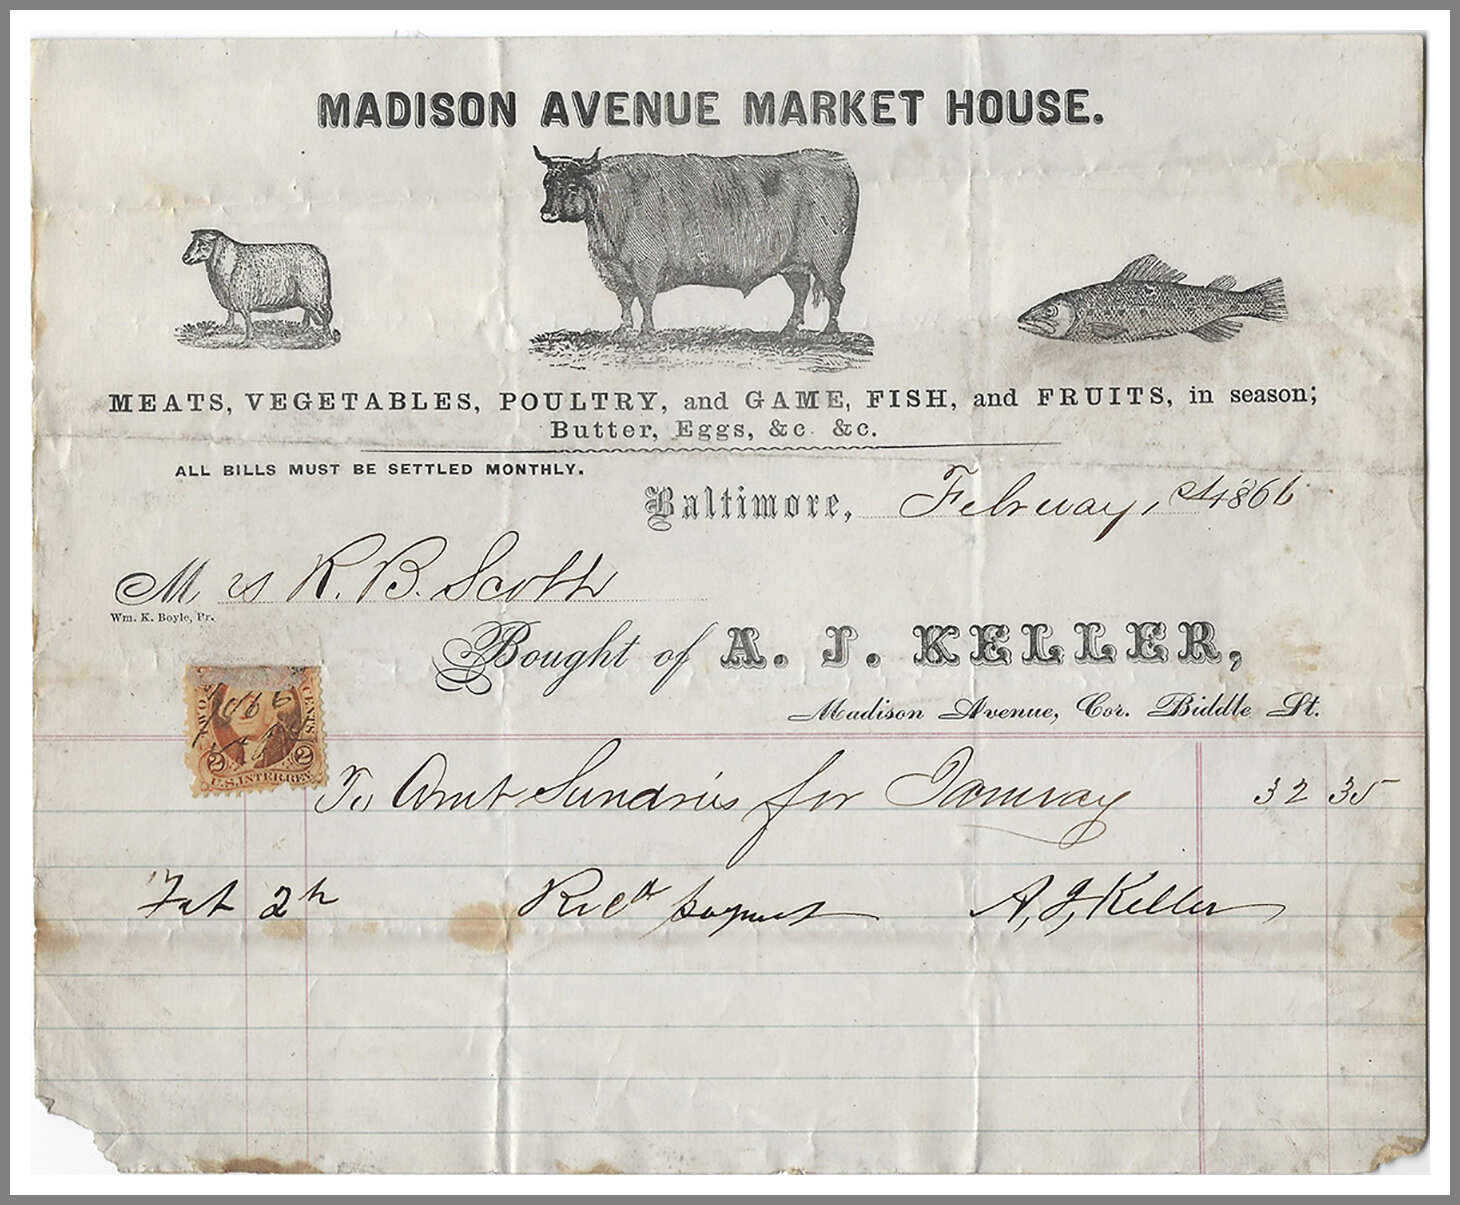 MADISON AVENUE MARKET HOUSE.
MEATS, VEGETABLES, POULTRY, and GAME, FISH, and FRUITS, in season;
Butter, Eggs, &c. &c.
ALL BILLS MUST BE SETTLED MONTHLY.
Baltimore, February, 1866
Ms R. B. Scott
Wm. K. Boyle, Pr.
Bought of A. J. KELLER,
Madison Avenue, Cor. Biddle St.
TWO CENTS
1866
2 2
U.S. INTER. REV.
To Amt Sundries for January 32 35
Feb 2h Recd payment A. J. Keller